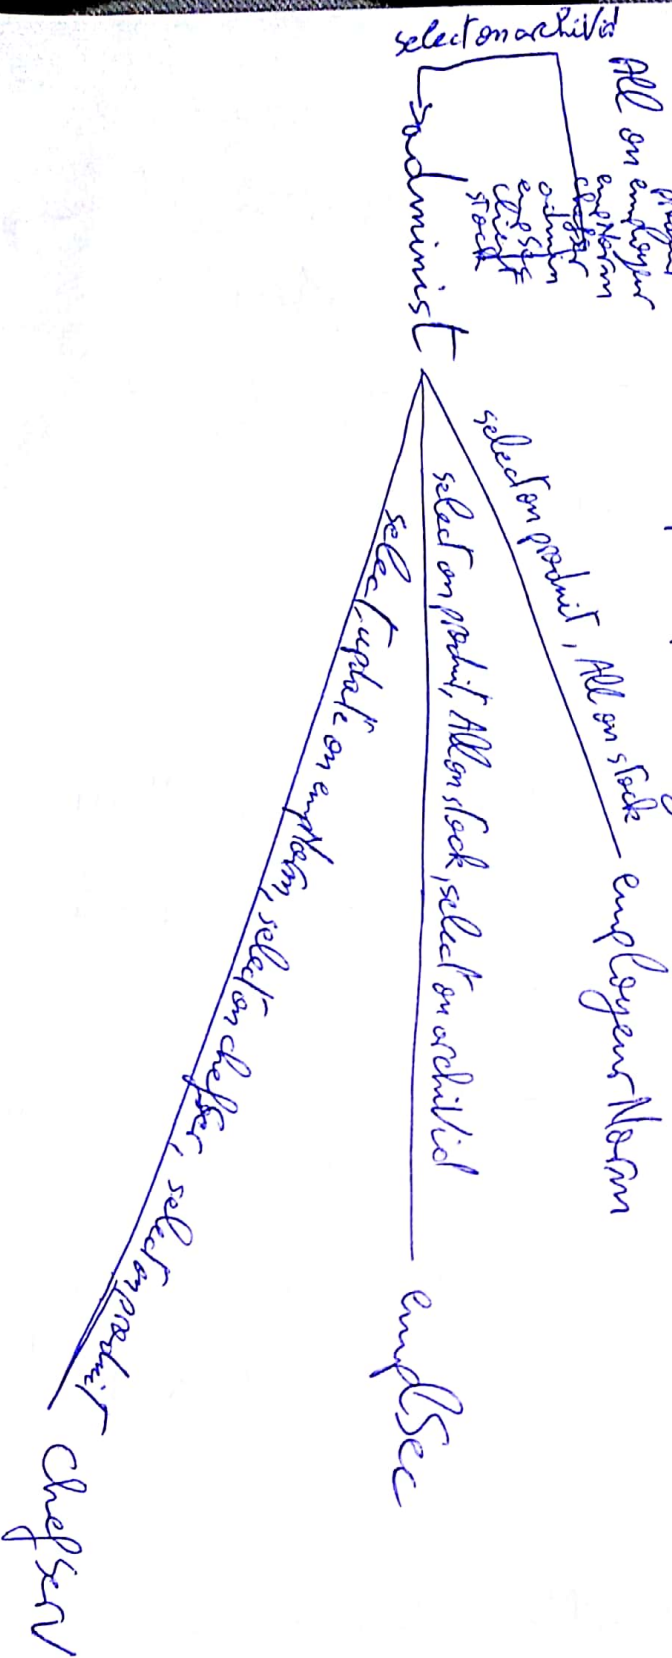 select on archivid
All on employeur
empNorm
chefser
admin
empsec
client
stock
administ
select on produit, All on stock
employeurNorm
select on produit, All on stock, select on archivid
emplSec
select, update on emplNorm, select on chefSer, select on produit
chefserv